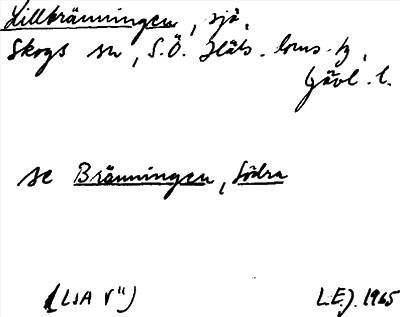 Lillbränningen, sjö,
Skogs sn, S.Ö. Häls. doms. tg,
Gävl. l.
se Bränningen, Södra
(LSA V")
L.E.J. 1965